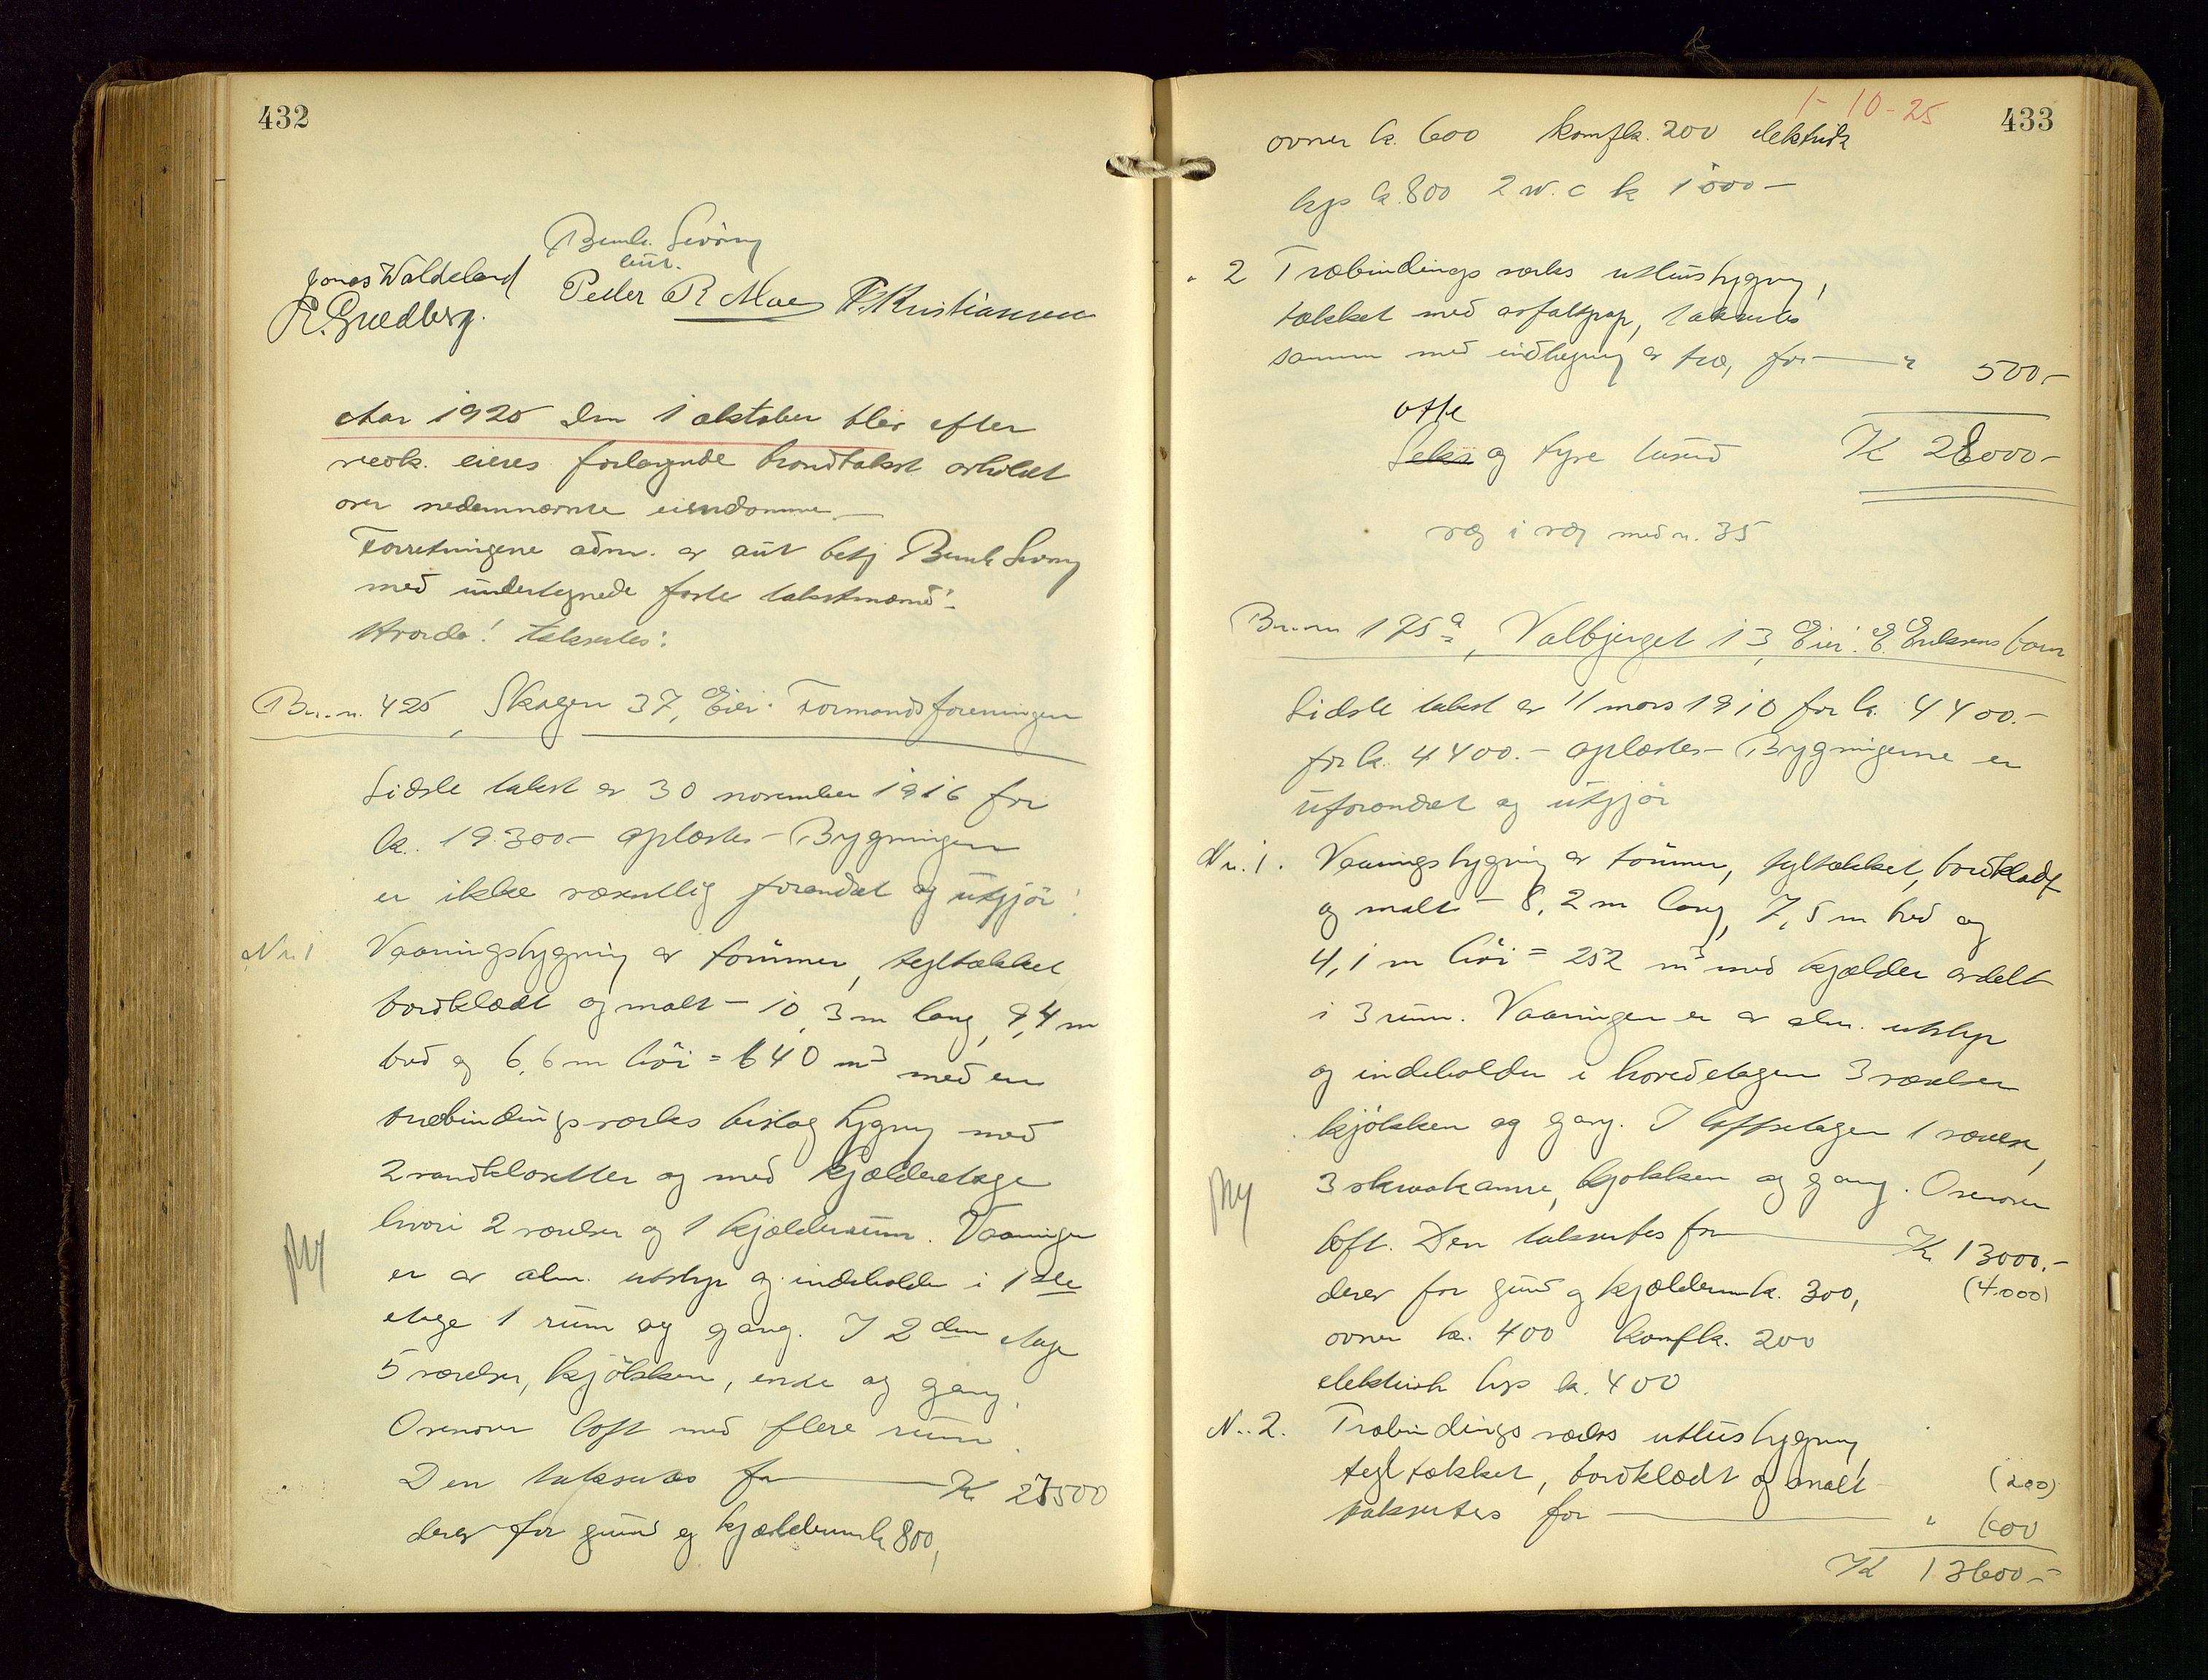 432
Bernh. Sivöry
aut.
Jonas Waldeland
Petter R Moe P. Kristiansen
R. Grødberg.
Aar 1925 den 1 oktober blev efter
vedk. eieres forlangende brandtakst avholdt
over nedennævnte eiendomme —
Forretningene adm. av aut betj Bernh Sivöry
med undertegnede faste takstmænd.
Hvorda! takseres:
Br.n. 425, Skagen 37, Eier: Formandsforeningen
Sidste takst er 30 november 1916 for
k. 19300.— oplæstes — Bygningen
er ikke væsentlig forandret og utgjör:
Nr. 1 Vaaningsbygning av tömmer, tegltækket
bordklædt og malt — 10,3 m lang, 9,4 m
bred og 6,6 m höi = 640 m³ med en
træbindingsverks bislag bygning med
2 vandklosetter og med kjælderetage
hvori 2 værelser og 1 kjælderrum. Vaaningen
er av alm. utstyr og indeholder i 1ste
etage 1 rum og gang. I 2den etage
5 værelser, kjökken, entre og gang.
Ovenover loft med flere rum.
Den takseres for — K 27500
derav for grund og kjælderrum k 800,
1-10-25
433
ovner k. 600 komf k. 200 elektrisk
lys k. 800 2 w.c k 1000 —
" 2 Træbindingsverks uthusbygning,
tækket med asfaltpap, takseres
sammen med indhegning av træ, for — " 500.—
otte
Seks og tyve tusend K 28000.—
væg i væg med n. 35
Br.nr 175a, Valbjerget 13, Eier: E. Eriksens barn
Sidste takst er 11 mars 1910 for k. 4400.—
for k. 4400.— oplæstes — Bygningerne er
uforandret og utgjör
Nr. 1. Vaaningsbygning av tömmer, tegltækket, bordklædt
og malt — 8,2 m lang, 7,5 m bred og
4,1 m höi = 252 m³ med kjælder avdelt
i 3 rum. Vaaningen er av alm. utstyr
og indeholder i hovedetagen 3 værelser
kjökken og gang. I loftsetagen 1 værelse,
3 skraakamre, kjøkken og gang. Ovenover
loft. Den takseres for — K 13000.—
derav for grund og kjælderrum k. 300, (4.000)
ovner k. 400 komf k. 200
elektrisk lys k. 400
N. 2. Træbindingsverks uthusbygning
tegltækket, bordklædt og malt (200)
takseres for — " 600
K 13600.—